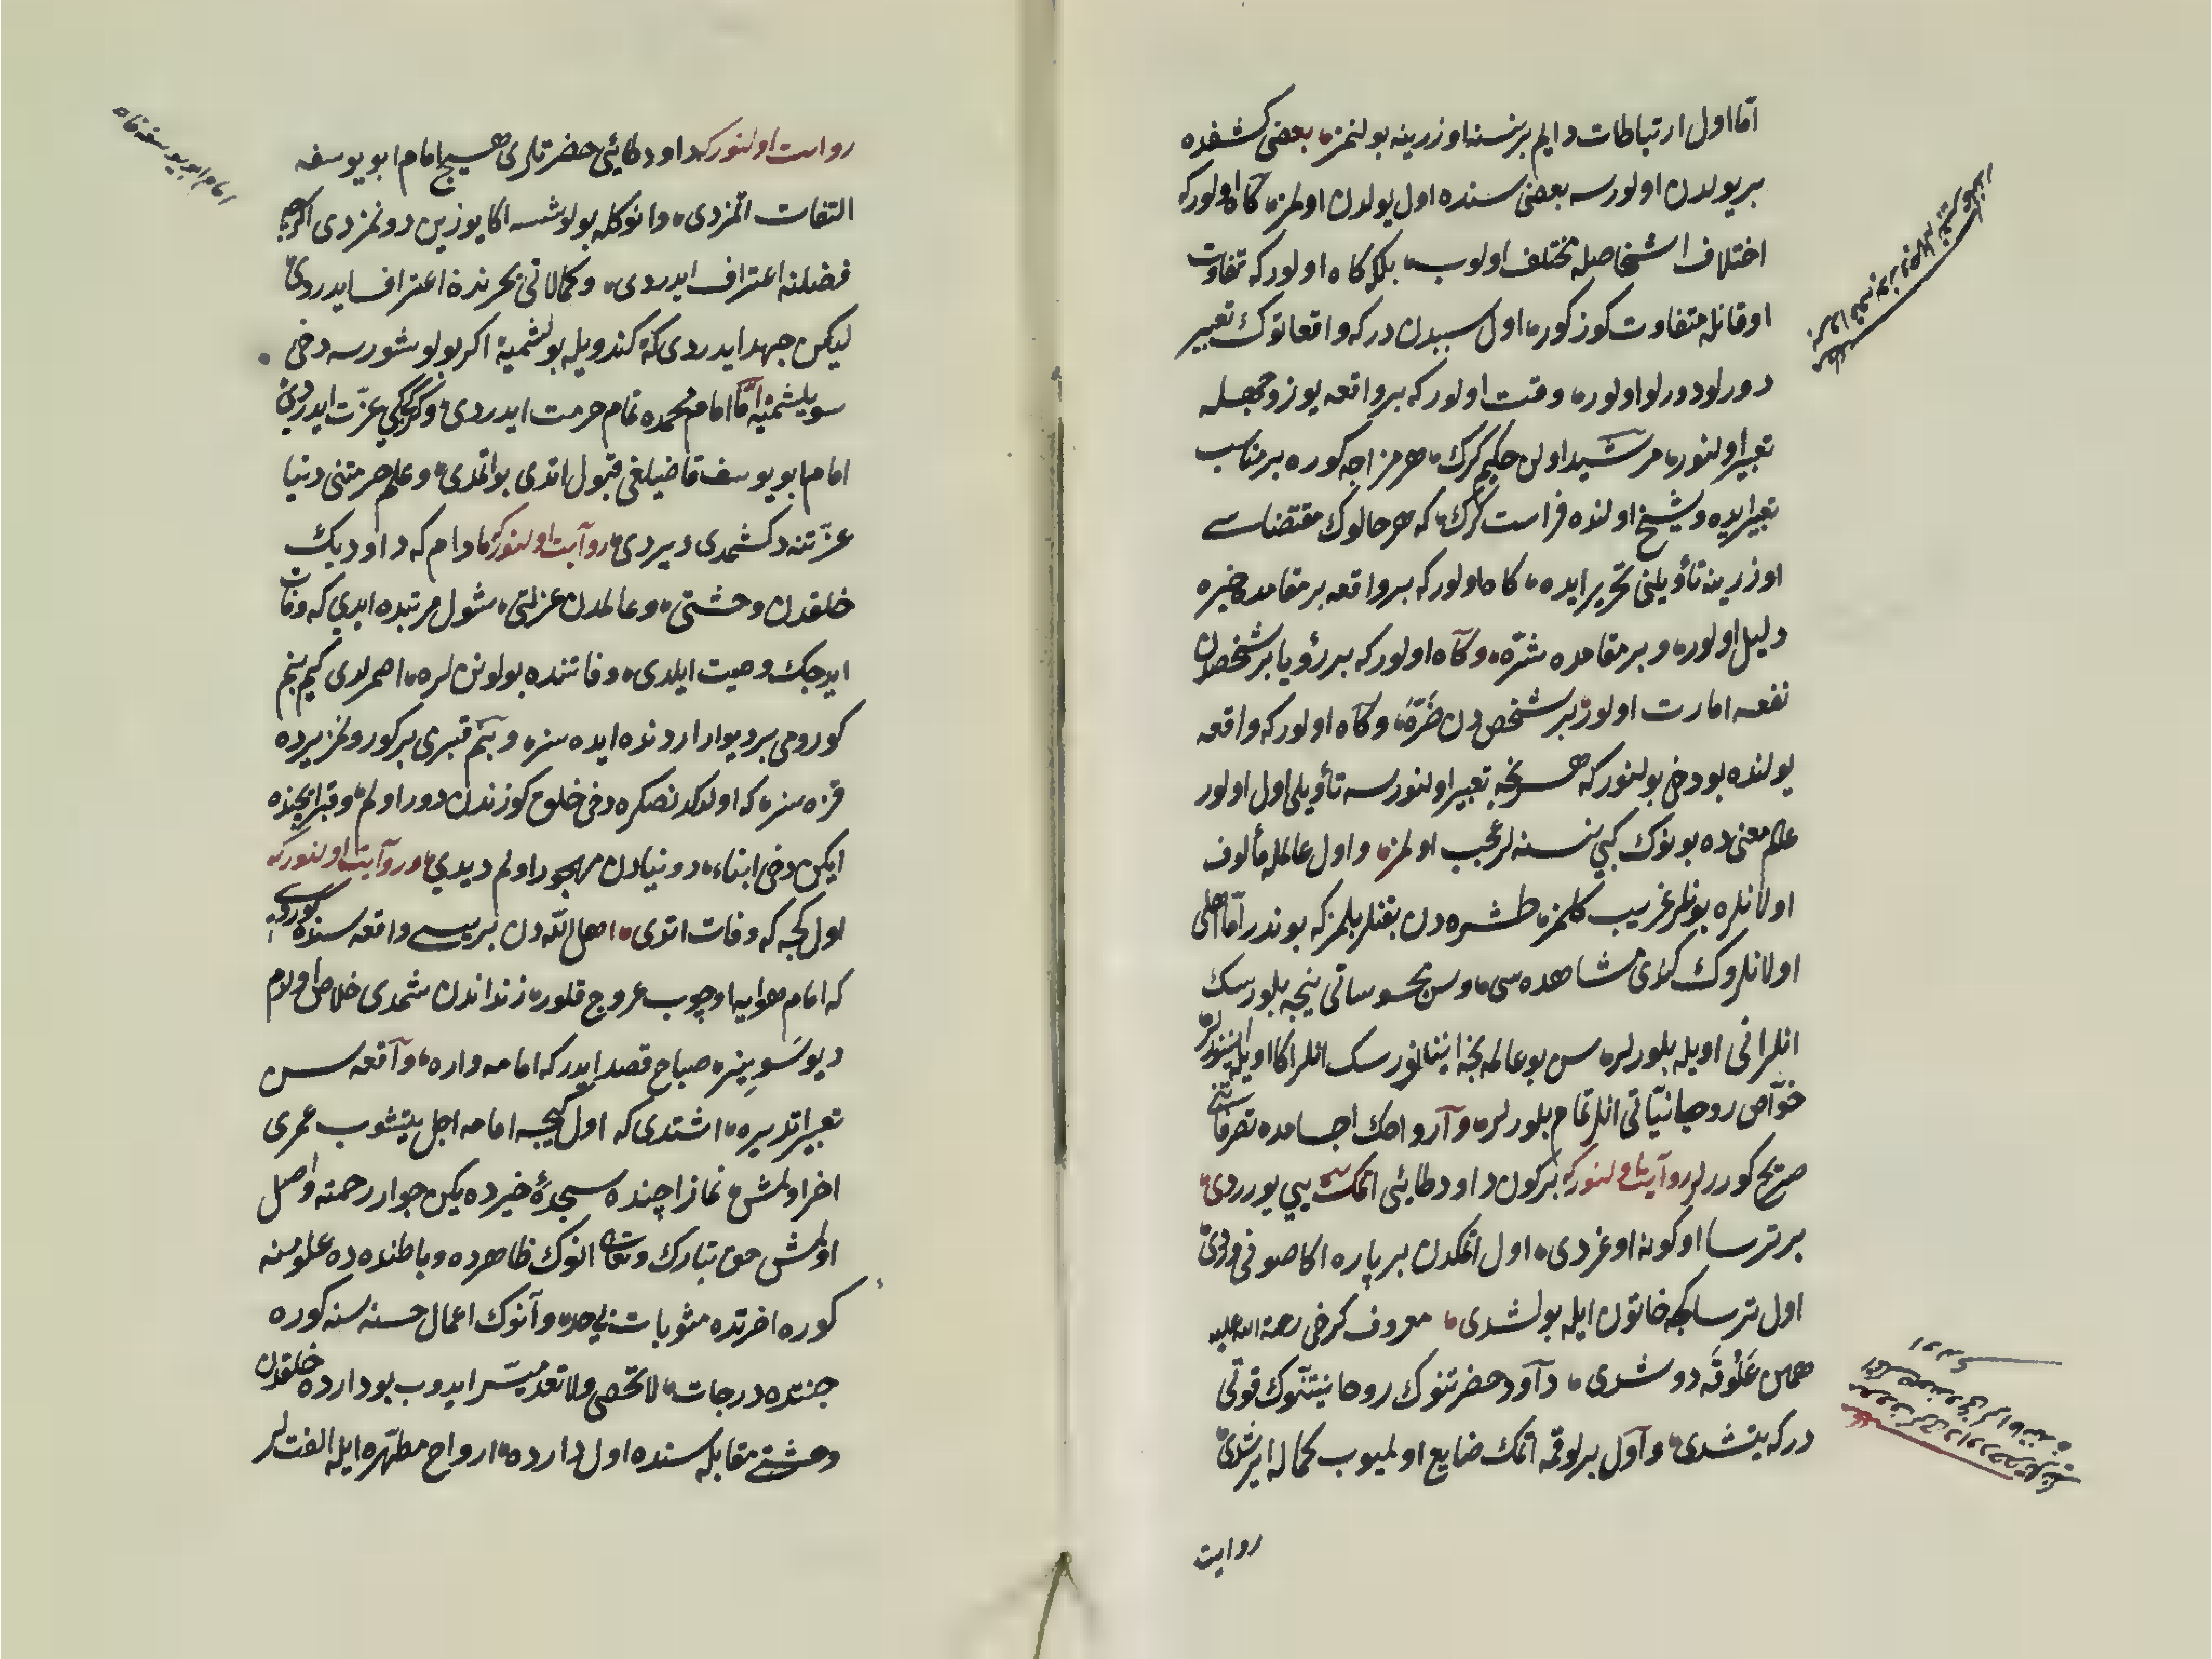 امّا اول ارتباطات دایم برنسنه اوزرینه بولنمز بعضی كشفده
بر یولدن اولورسه بعضی سنده اول یولدن اولمز كاه اولور كه
اختلاف اشخاصله مختلف اولوب بلكه كاه اولور كه تفاوت
اوقاتله متفاوت كوزكور اول سببدن در كه واقعاتوك تعبیر
دورلو دورلو اولور وقت اولور كه بر واقعه یوز وجهله
تعبیر اولنور مرشید اولن حكیم كرك هر مزاجه كوره بر مناسب
تعبیر ایده و شیخ اولنده فراست كرك كه هر حالوك مقتضاسی
اوزرینه تأویلنی تحریر ایده كاه اولور كه بر واقعه بر مقامده خیره
دلیل اولور و بر مقامده شرّه وكاه اولور كه بر رؤیا بر شخصدن
نفعه امارت اولور بر شخص دن ضرّه وكاه اولور كه واقعه
یولنده بو دخی بولنور كه هر نیجه تعبیر اولنورسه تأویلی اول اولور
علم معنی ده بونوك كبی نسنه لر عجب اولمز و اول عالمله مألوف
اولانلره بونلر غریب كلمز طشره دن بقنلر بلمز كه بوندر امّا اهلی
اولانلروك كندی مشاهده سی وسن محسوساتی نیجه بلورسك
انلر انی اویله بلورلر سن بو عالمه نجه اینانورسك انلر اكا اویله اینانورلر
خوّاص روحانیّاتی انلر تمام بلورلر و ارواحك اجسامده تصرفاتنی
صریح كوررلر روایت اولنور كه بر كون داود طایئی اتمك یییوردی
بر ترسا اوكونه اوغردی اول اتمكدن بر پاره اكا صونی ویردی
اول ترسا كیجه خاتون ایله بولشدی معروف كرخی رحمة الله علیه
همان عَلُوقَه دوشدی داود حضرتنوك روحانیّتنوك قوّتی
دركه یتشدی و اول بر لوقمه اتمك ضایع اولمیوب كماله ایرشدی
روایت
روایت اولنور كه داود طائیی حضرتلری هیچ امام ابو یوسفه
التفات اتمزدی و انوكله بولوشسه اكا یوزین دونمزدی اكرچه
فضلنه اعتراف ایدردی و كمالاتی بحرندة اعتراف ایدردی
لیكن جهد ایدردی كه كندویله بولشمیه اكر بولوشورسه دخی
سویلشمیه امّا امام محمده تمام حرمت ایدردی و كركی كبی عزّت ایدردی
امام ابو یوسف قاضیلغی قبول اتدی بو اتمدی و علم حرمتنی دنیا
عزّتنه دكشمدی دیردی روایت اولنور مادام كه داود بك
خلقدن وحشتی و عالمدن عزلتی شول مرتبده ایدی كه وفات
ایدجك وصیت ایلدی وفاتنده بولونن لره اصمرلدی كیم بنم
كورومی بر دیوار اردنده ایده سز و بنم قبری بر كورولمز یرده
قزه سز كه اولدكدنصكره دخی خلوق كوزندن دور اولم و قبر ایچنده
ایكن دخی ابناء دونیادن مهجور اولم دیدی و روایت اولنور كه
اول كیجه كه وفات اتدی اهل الله دن بریسی واقعه سنده كوردی
كه امام هوایه اوچوب عروج قلور زنداندن شمدی خلاص اولدم
دیو سَوینر صباح قصد ایدر كه امامه واره و واقعه سن
تعبیر اتدیره اشتدی كه اول كیجه امامه اجل یتیشوب عمری
اخر اولمش نماز اچنده سجدهٔ خیرده یكن جوار رحمته واصل
اولمش حق تبارك وتعالی انوك ظاهرده و باطنده ده علومنه
كوره اخرتده مثوبات بیحد و انوك اعمال حسنه سنه كوره
جنتده درجات لا تحصی ولا تعد میسّر ایدوب بو دارده خلقدن
وحشتی مقابله سنده اول دارده ارواح مطهّره ایله الفتلر